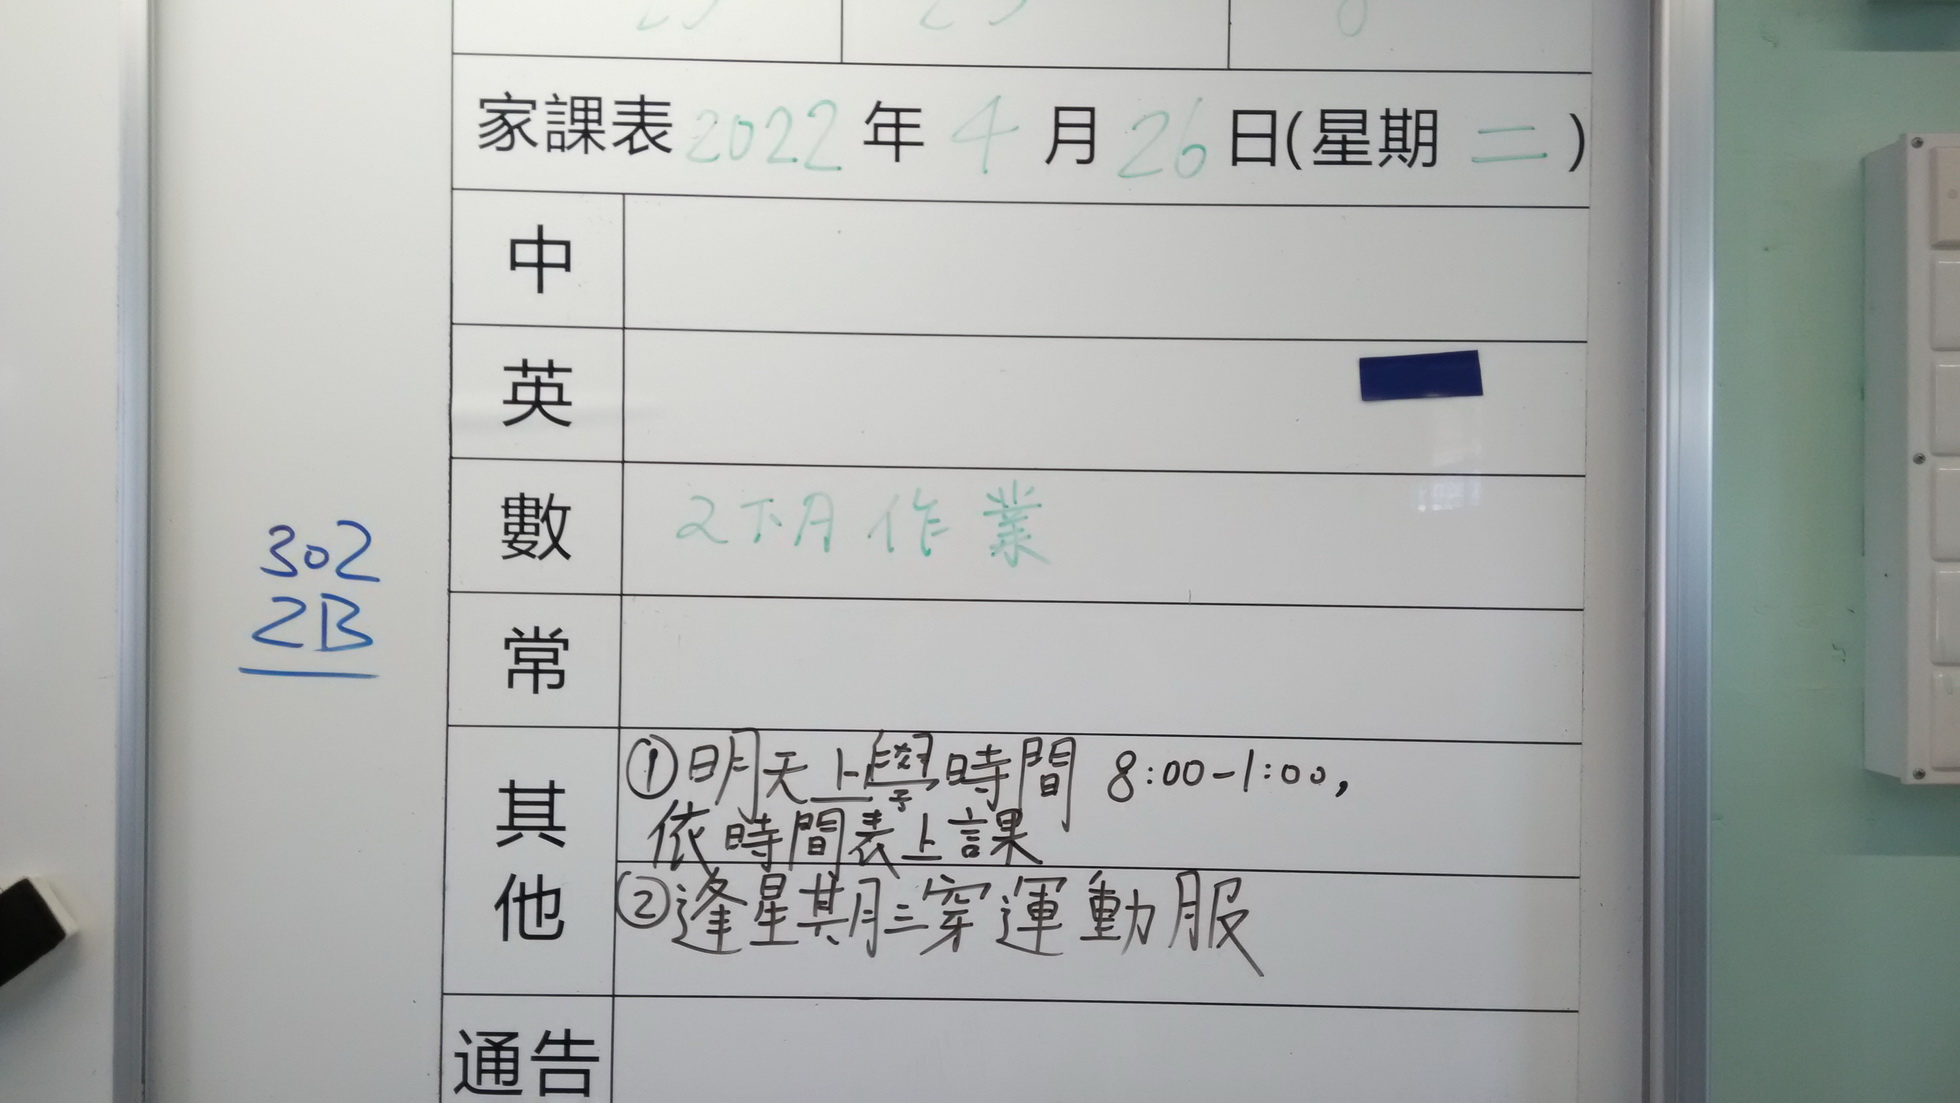 家課表 2022 年 4 月 26 日(星期 二)
中
英
數 2下月作業
302
2B
常
其他
①明天上學時間 8:00-1:00,
依時間表上課
②逢星期三穿運動服
通告